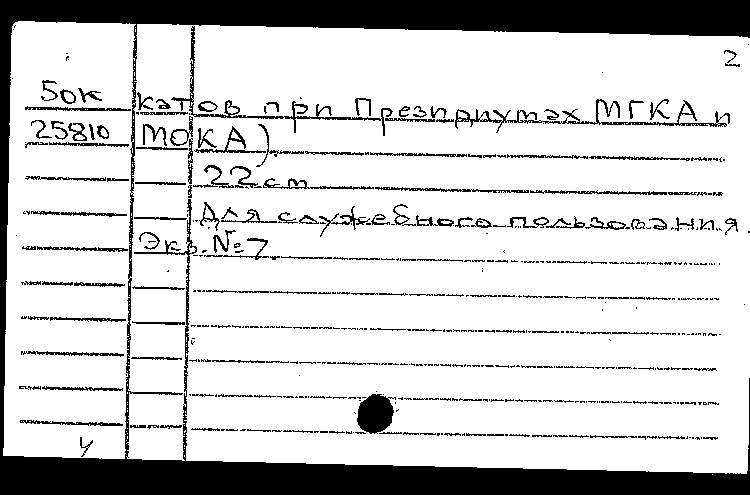 2
50к
катов при Президиумах МГКА и
25810
МОКА).
22 cm
Для служебного пользования.
Экз. №7.
У